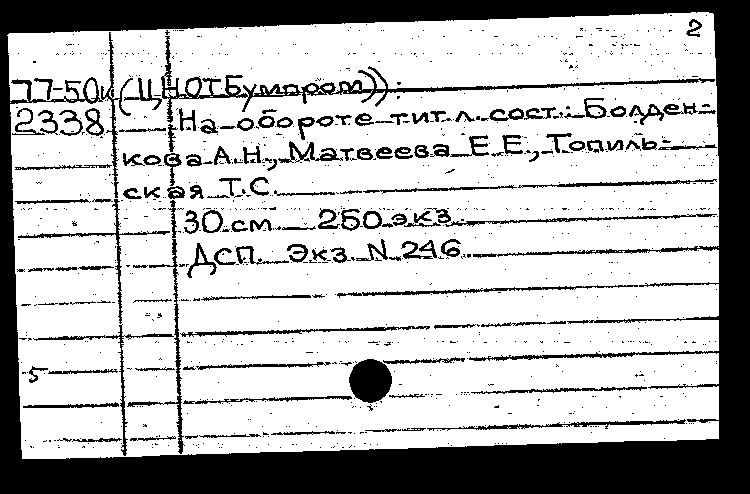 2
77-50к (ЦНОТБумпром)):
2338 На обороте тит. л. сост.: Болден-
кова А.Н., Матвеева Е.Е., Тополь-
ская Т.С.
30 см 250 экз.
ДСП. Экз. N 246
5